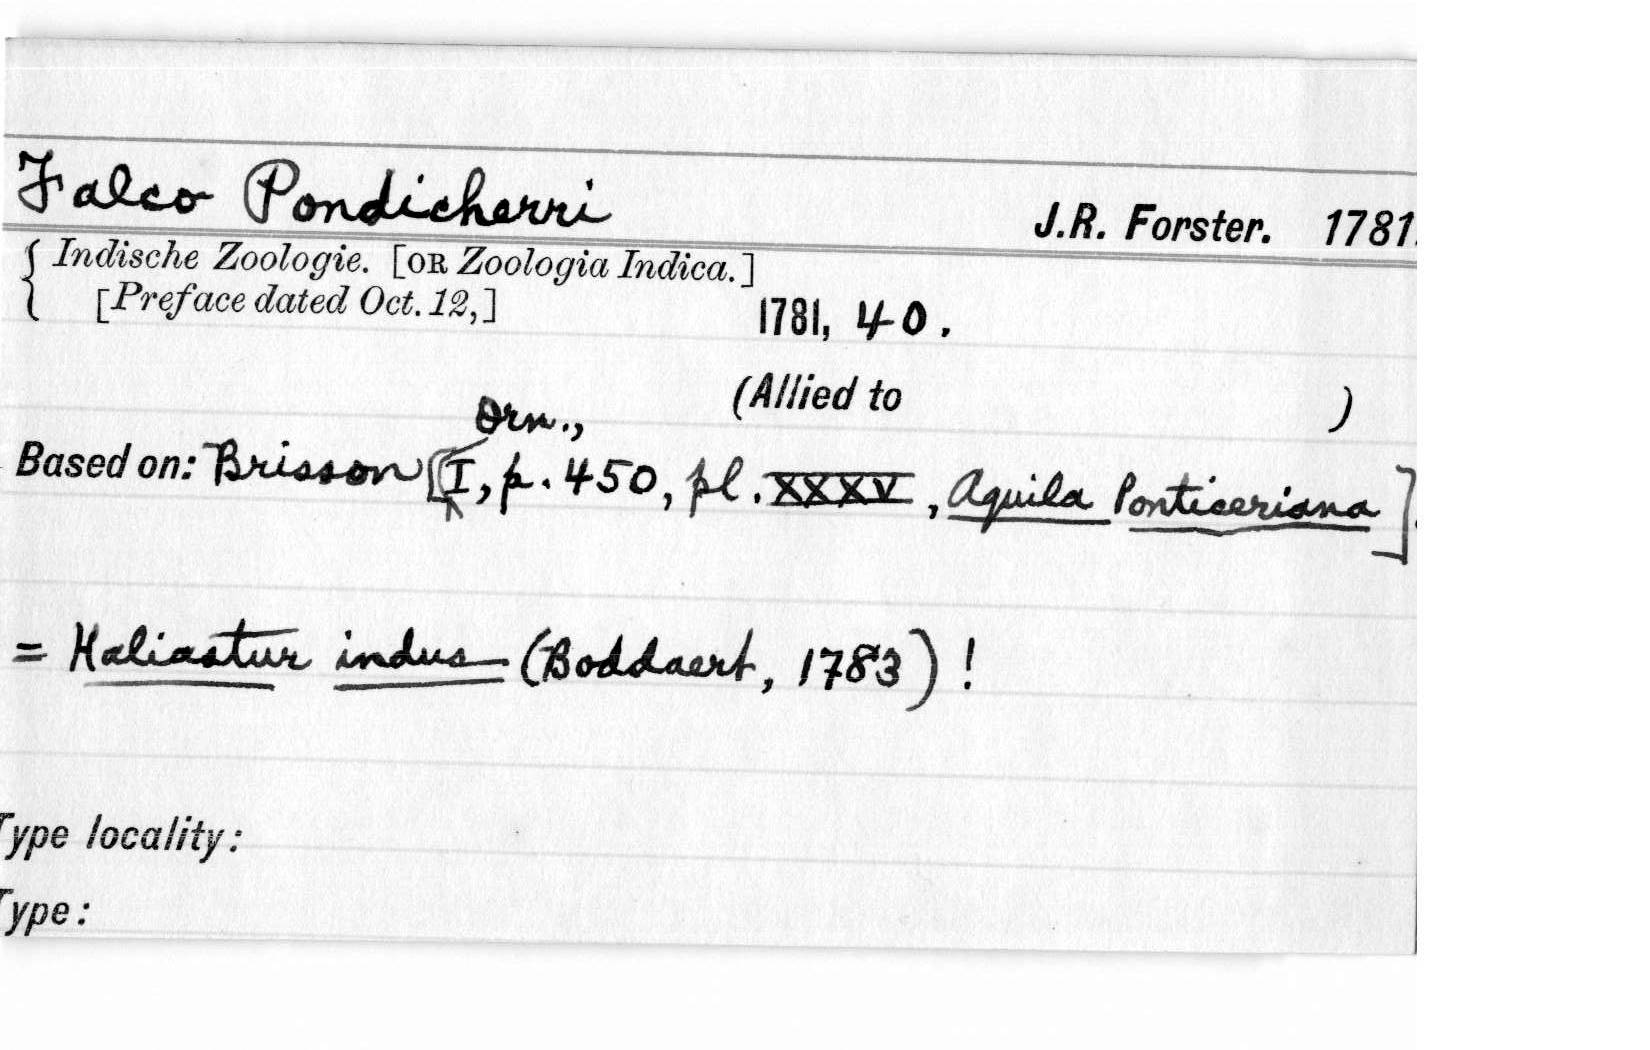 Falco Pondicherri
J.R. Forster. 1781.
Indische Zoologie. [OR Zoologia Indica.]
[Preface dated Oct. 12,]
1781, 40.
(Allied to )
Orn.,
Based on: Brisson [I, p. 450, pl. XXXV, Aquila Ponticeriana].
= Haliastur indus (Boddaert, 1783) !
Type locality:
Type: